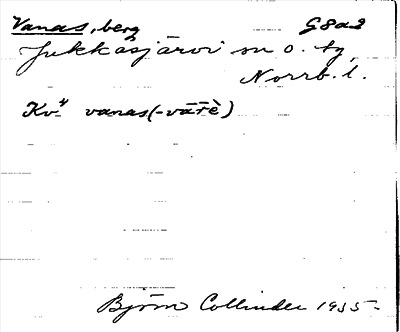 Vanas, berg G8a2
Jukkasjärvi sn o. tg,
Norrb. l.
Kv. vanas (-vārè)
Björn Collinder 1935